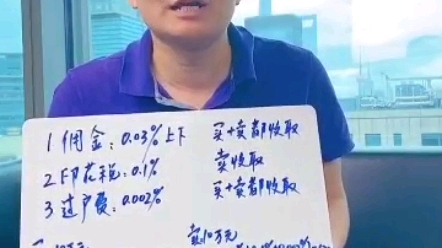 1 佣金：0.03% 上下 买+卖都收取
2 印花税：0.1% 卖收取
3 过户费：0.002% 买+卖都收取
卖10万元